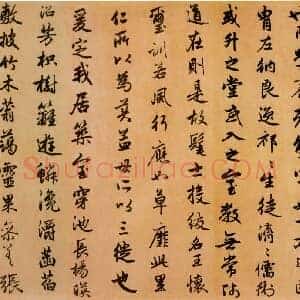 胄左納良逸祁祁生徒濟濟儒術
或升之堂或入之室教無常師
道在則是故髦士投紱名王懷
璽訓若風行應如草靡此里
仁所以為美孟母所以三徙也
爰定我居築室穿池長楊映
沼芳枳樹籬遊鱗瀺灂菡萏
敷披竹木蓊藹靈果參差張
ShufaZiliao.COM